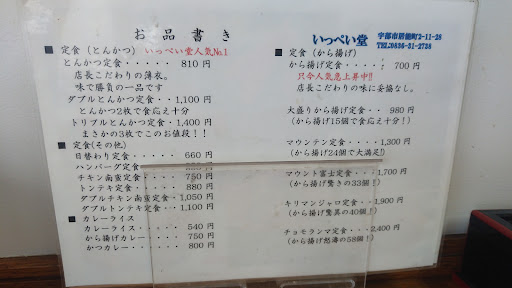 お品書き
■ 定食（とんかつ）いっぺい堂人気№1
とんかつ定食・・・・・ 810 円
店長こだわりの薄衣。
味で勝負の一品です
ダブルとんかつ定食・・1,100 円
とんかつ2枚で食応え十分
トリプルとんかつ定食・1,400 円
まさかの3枚でこのお値段！！
■ 定食(その他)
日替わり定食・・・・・ 660 円
ハンバーグ定食
チキン南蛮定食・・・・ 750 円
トンテキ定食・・・・・ 880 円
ダブルチキン南蛮定食・1,050 円
ダブルトンテキ定食・・1,100 円
■ カレーライス
カレーライス・・・・・ 540 円
から揚げカレー・・・・ 750 円
かつカレー・・・・・・ 800 円
いっぺい堂
宇部市居能町2-11-26
TEL.0836-31-2736
■ 定食（から揚げ）
から揚げ定食・・・・・ 700 円
只今人気急上昇中!!
店長こだわりの味に妥協なし。
大盛りから揚げ定食・・ 980 円
（から揚げ15個で食応え十分！）
マウンテン定食・・・・1,300 円
（から揚げ24個で大満足！）
マウント富士定食・・・1,700 円
（から揚げ驚きの33個！）
キリマンジャロ定食・・1,900 円
（から揚げ驚異の40個！）
チョモランマ定食・・・2,400 円
（から揚げ怒濤の58個！）